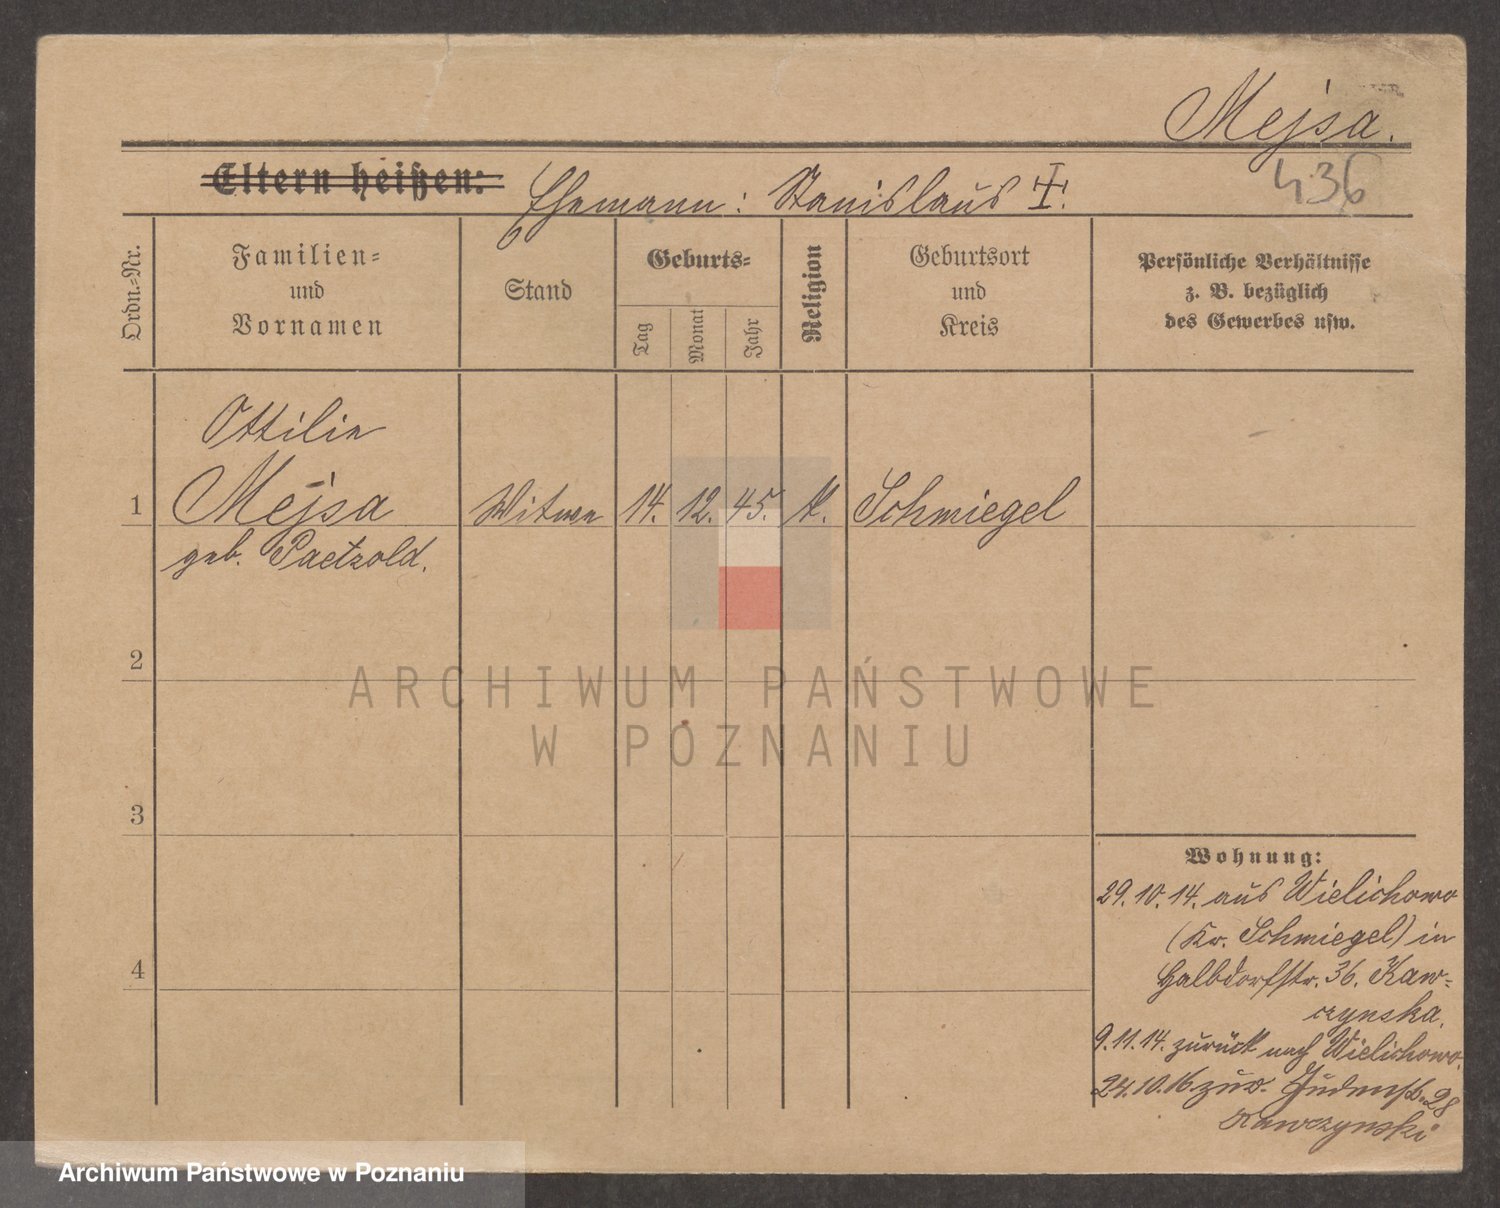 Mejsa.
436
Eltern heißen: Ehemann: Stanislaus †.
Ordn.=Nr.
Familien=
und
Vornamen
Stand
Geburts=
Tag
Monat
Jahr
Religion
Geburtsort
und
Kreis
Persönliche Verhältnisse
z. B. bezüglich
des Gewerbes usw.
Ottilie
1 Mejsa Witwe 14. 12. 45. k. Schmiegel
geb. Paetzold.
2
ARCHIWUM PAŃSTWOWE
W POZNANIU
3
Wohnung:
29.10.14. aus Wielichowo
(Kr. Schmiegel) in
Halbdorfstr. 36. Kaw=
czynska.
4
9.11.14. zurück nach Wielichowo.
24.10.16 zur. Judenstr. 28
Kawczynski
Archiwum Państwowe w Poznaniu